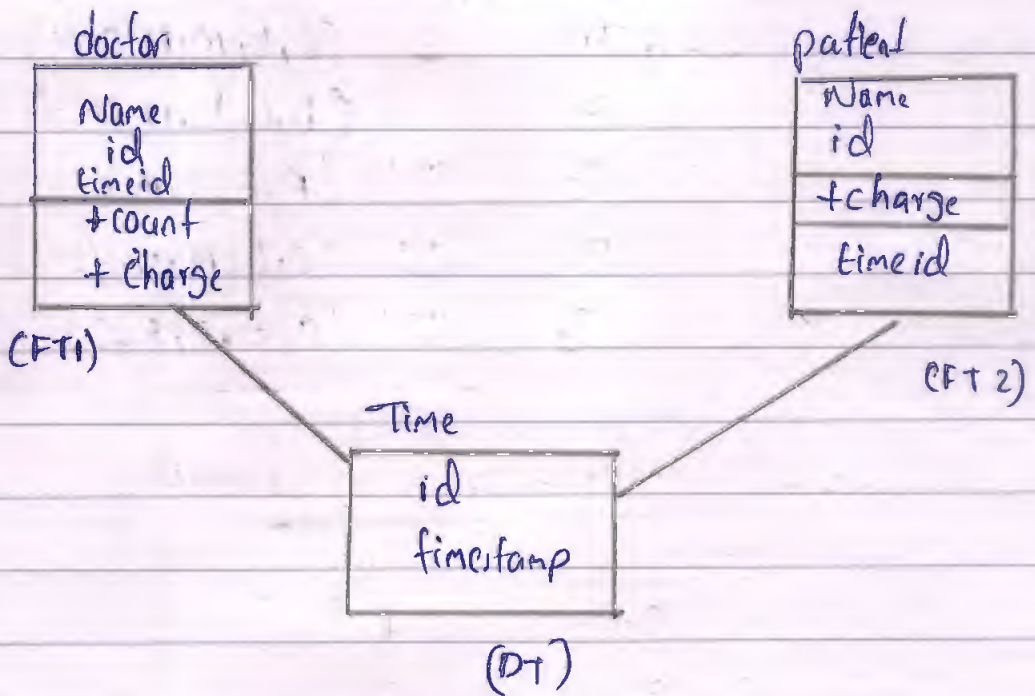 doctor
Name
id
timeid
+count
+ charge
(FT1)
patient
Name
id
+charge
timeid
(FT 2)
Time
id
timestamp
(DT)